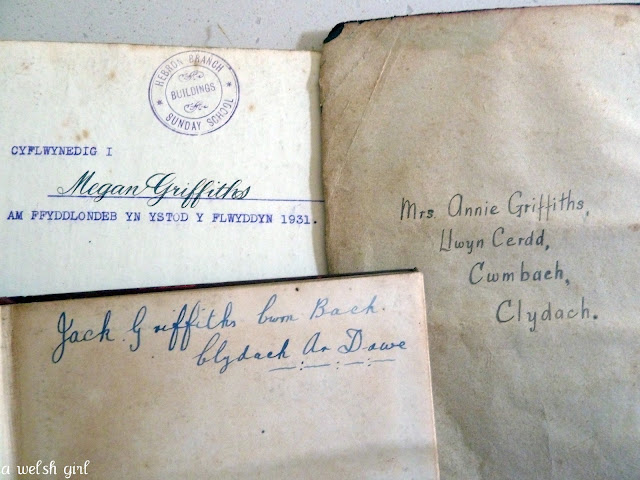 HEBRON BRANCH
BUILDINGS
SUNDAY SCHOOL
CYFLWYNEDIG I
Megan Griffiths
AM FFYDDLONDEB YN YSTOD Y FLWYDDYN 1931.
Mrs. Annie Griffiths,
Llwyn Cerdd,
Cwmbach,
Clydach.
Jack Griffiths Cwm Bach.
Clydach Ar Dawe
a welsh girl